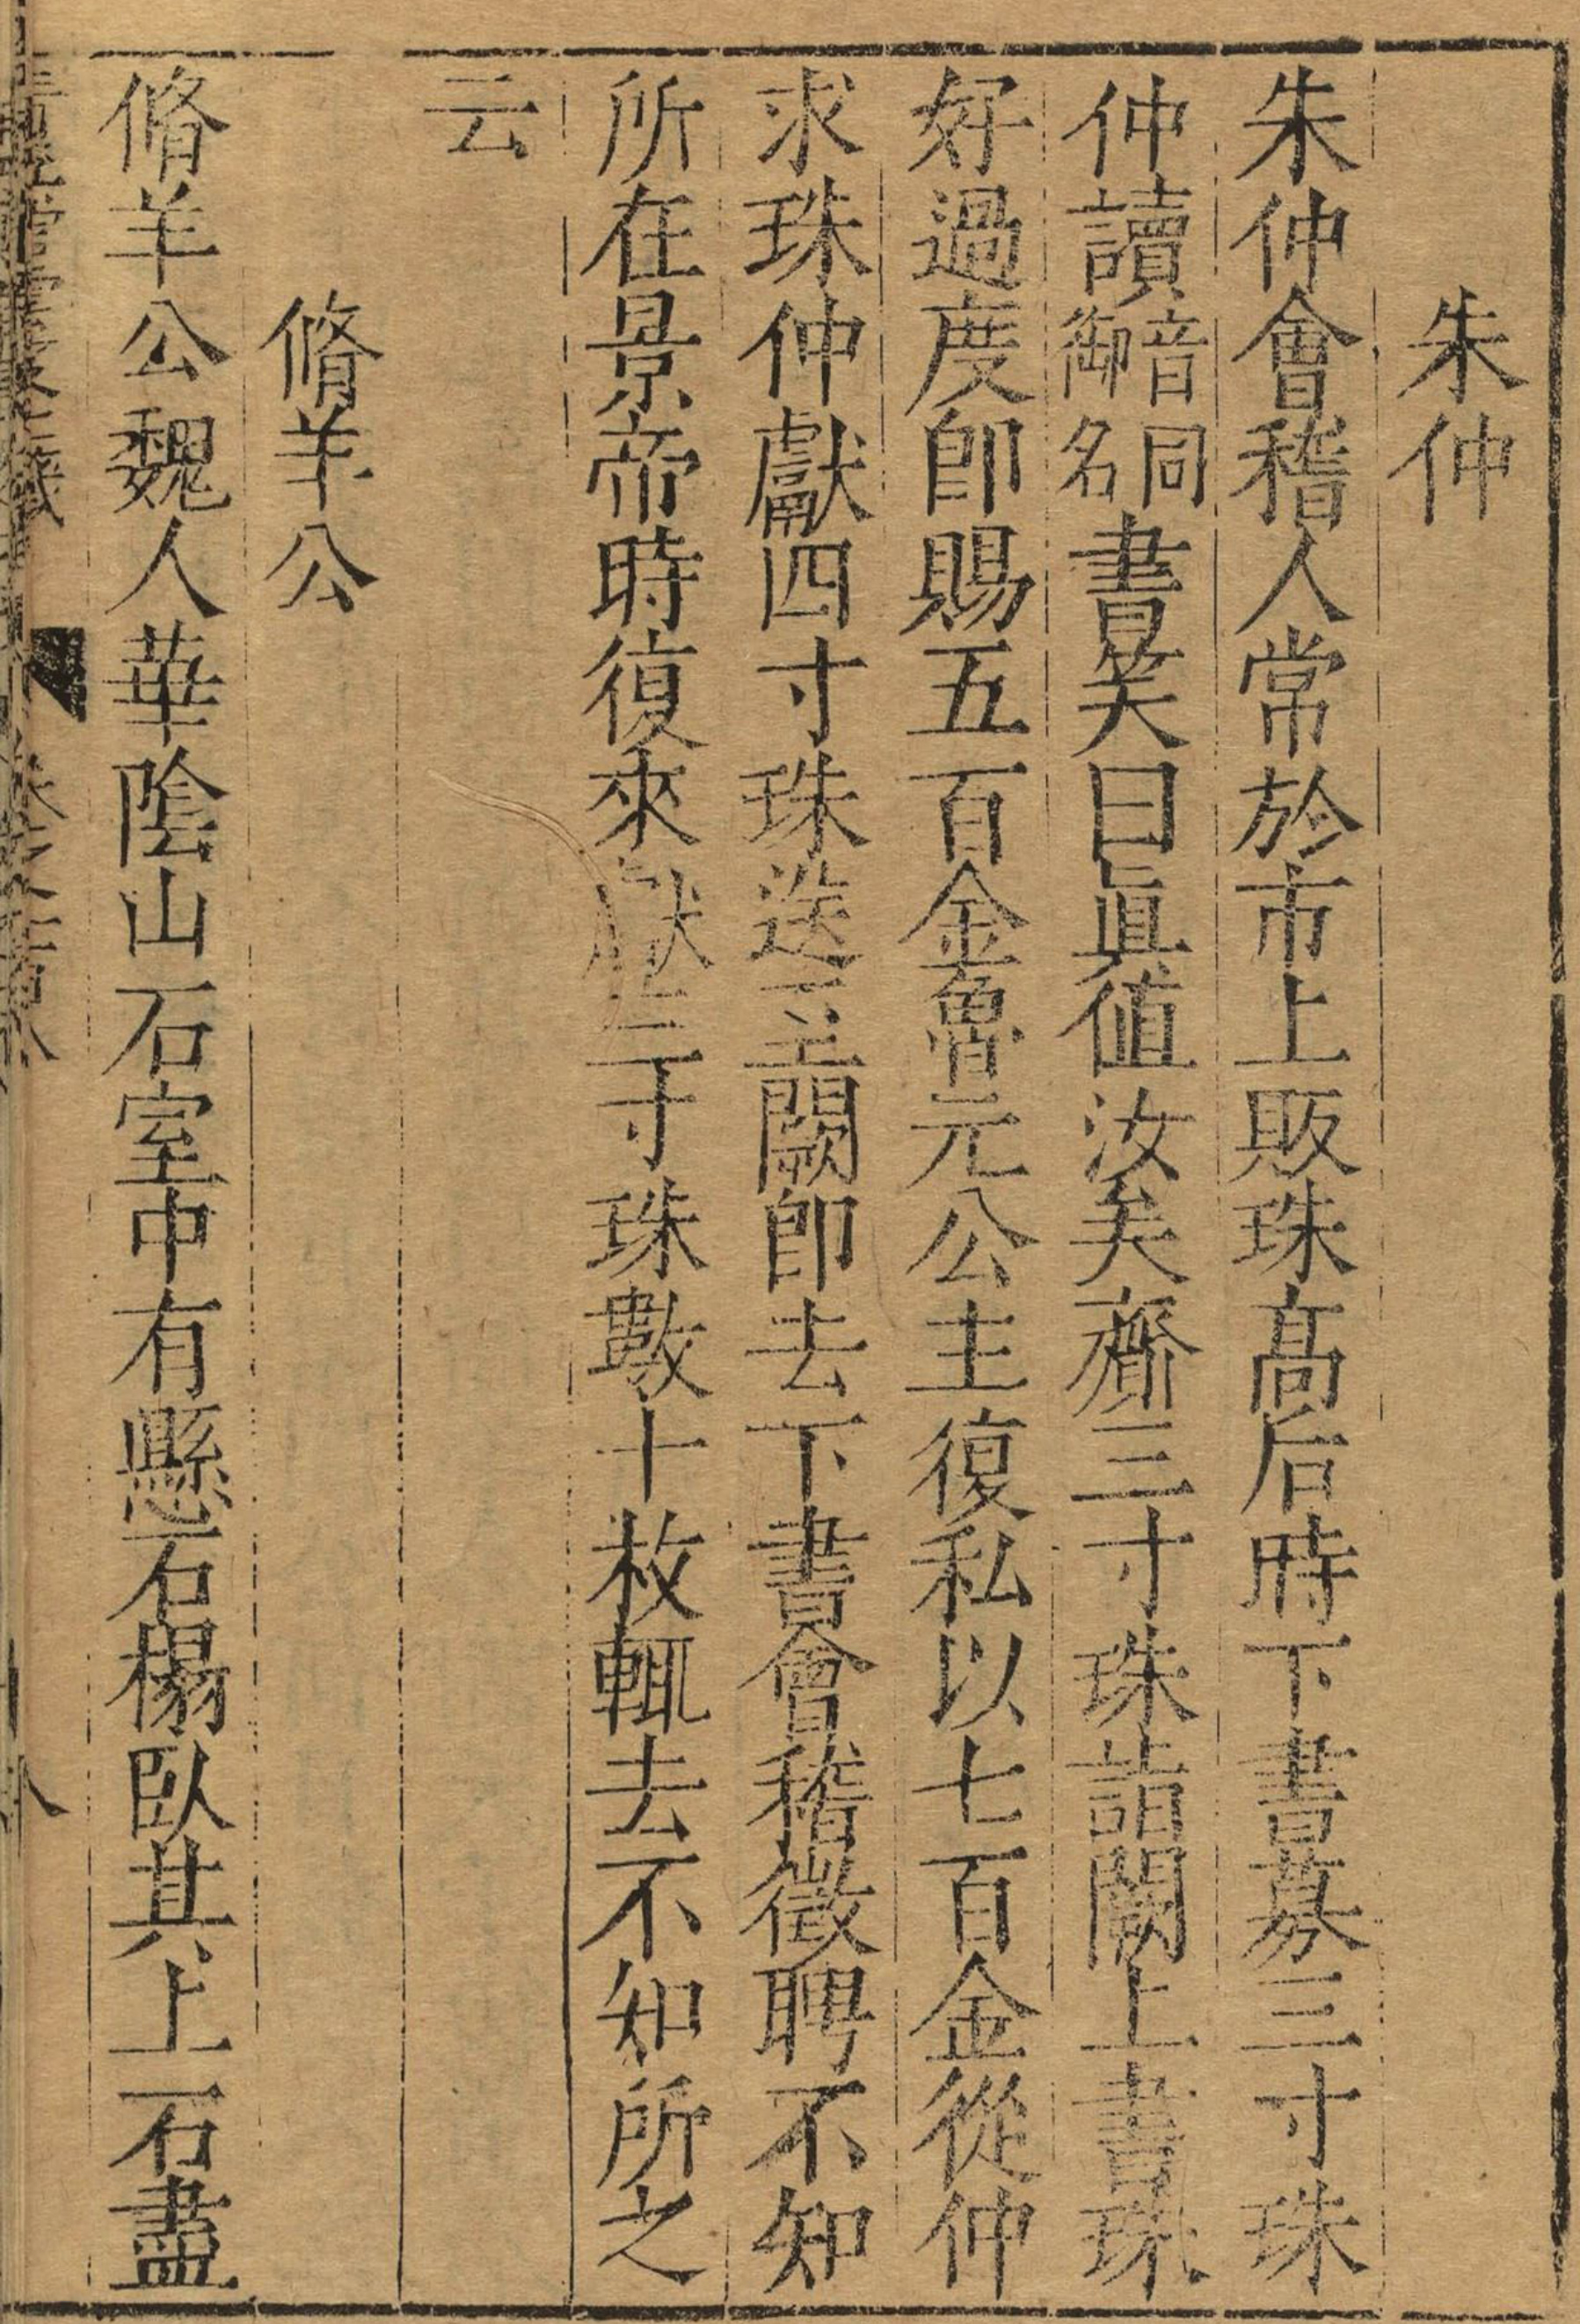 朱仲
朱仲會稽人常於市上販珠髙后時下書募三寸珠
仲讀音同御名書笑曰眞値汝矣齎三寸珠詣闕上書珠
好過度卽賜五百金魯元公主復私以七百金從仲
求珠仲獻四寸珠送至闕卽去下書會稽徵聘不知
所在景帝時復來獻三寸珠數十枚輒去不知所之
云
脩羊公
脩羊公魏人華陰山石室中有懸石榻臥其上石盡